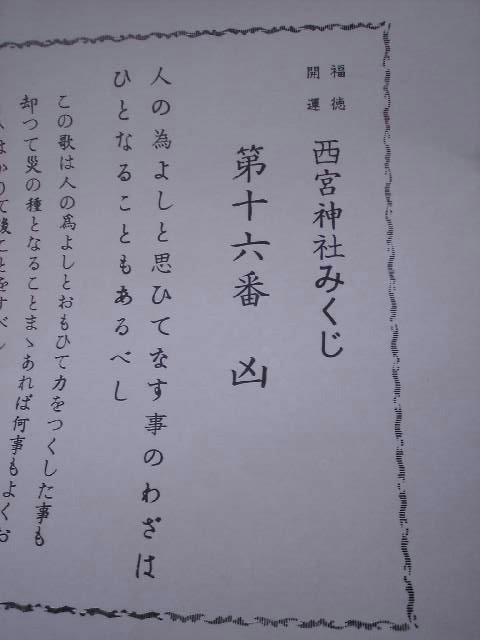 福徳
開運
西宮神社みくじ
第十六番 凶
人の為よしと思ひてなす事のわざは
ひとなることもあるべし
この歌は人の爲よしとおもひて力をつくした事も
却つて災の種となることまゝあれば何事もよくお
はかりて後ことをすべし